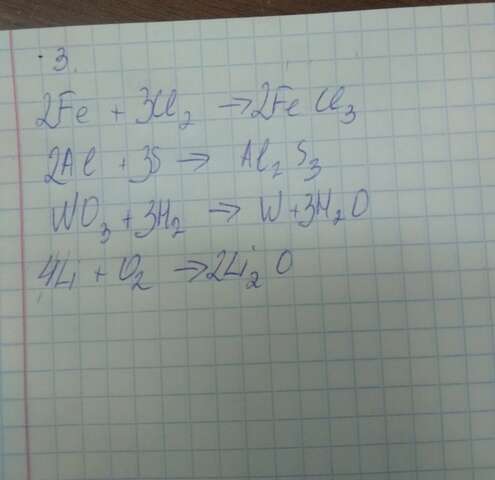 3.
2Fe + 3Cl₂ → 2FeCl₃
2Al + 3S → Al₂S₃
WO₃ + 3H₂ → W + 3H₂O
4Li + O₂ → 2Li₂O